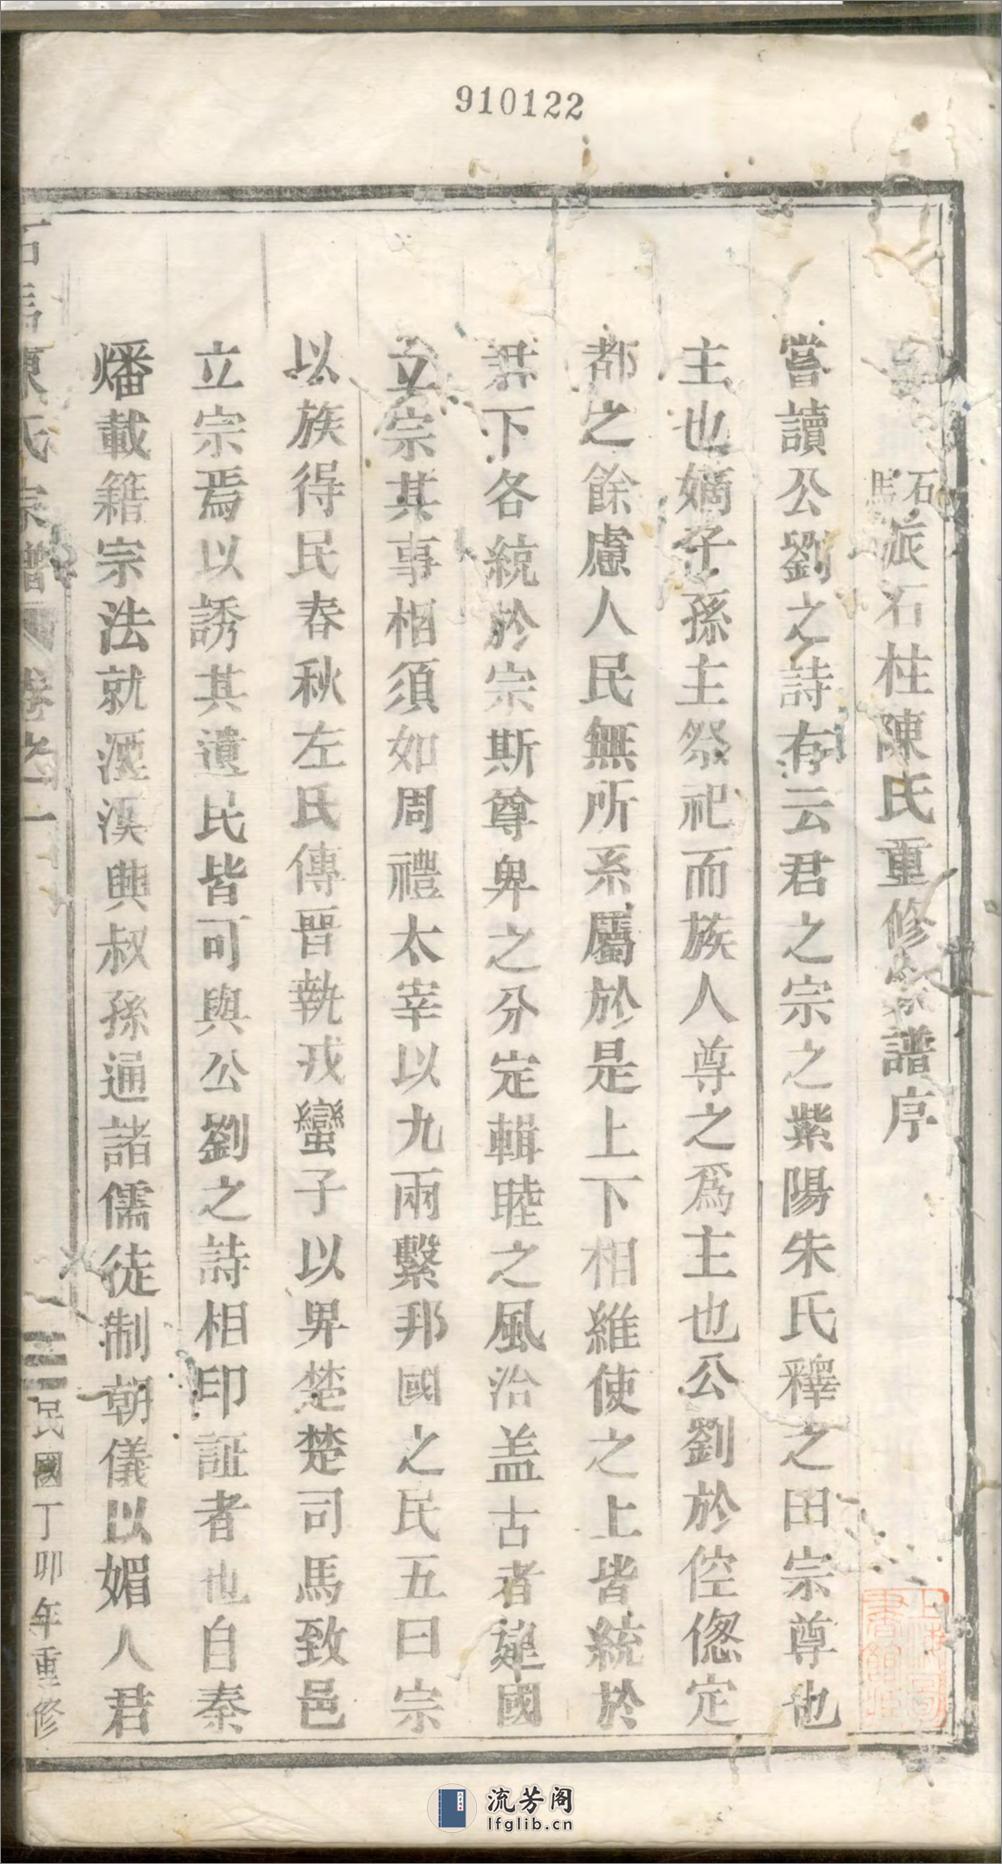 910122
石馬派石柱陳氏重修宗譜序
嘗讀公劉之詩有云君之宗之紫陽朱氏釋之曰宗尊也
主也嫡子孫主祭祀而族人尊之為主也公劉於倥偬定
都之餘慮人民無所系屬於是上下相維使之上皆統於
君下各統於宗斯尊卑之分定輯睦之風洽盖古者建國
立宗其事相須如周禮太宰以九兩繫邦國之民五曰宗
以族得民春秋左氏傳晉執戎蠻子以畀楚楚司馬致邑
立宗焉以誘其遺民皆可與公劉之詩相印証者也自秦
燔載籍宗法就湮漢興叔孫通諸儒徒制朝儀以媚人君
石馬陳氏宗譜 卷之一 民國丁卯年重修
流芳阁
lfglib.cn